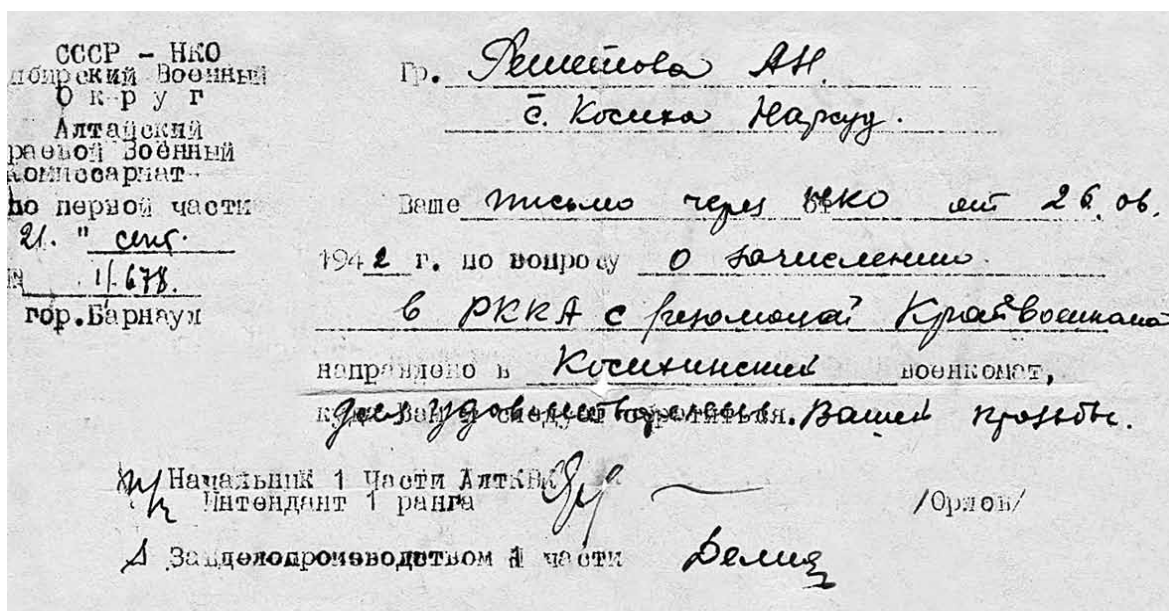 СССР – НКО
ибирский Военный
О к р у г
Алтайский
раевой Военный
комиссариат
по первой части
21. " сент.
№ 1/.678.
гор.Барнаул
Гр. АН.
с. Косиха Нарсуд.
Ваше письмо через НКО от 26. 06.
1942 г. по вопросу о зачислении
в РККА с резолюцией Крайвоенкома
направлено в Косихинский военкомат,
куда Вам и следует обратиться. для удовлетворения Вашей прозьбы.
Начальник 1 Части АлтКВК
Интендант 1 ранга /Орлов/
Завделопроизводством 1 части